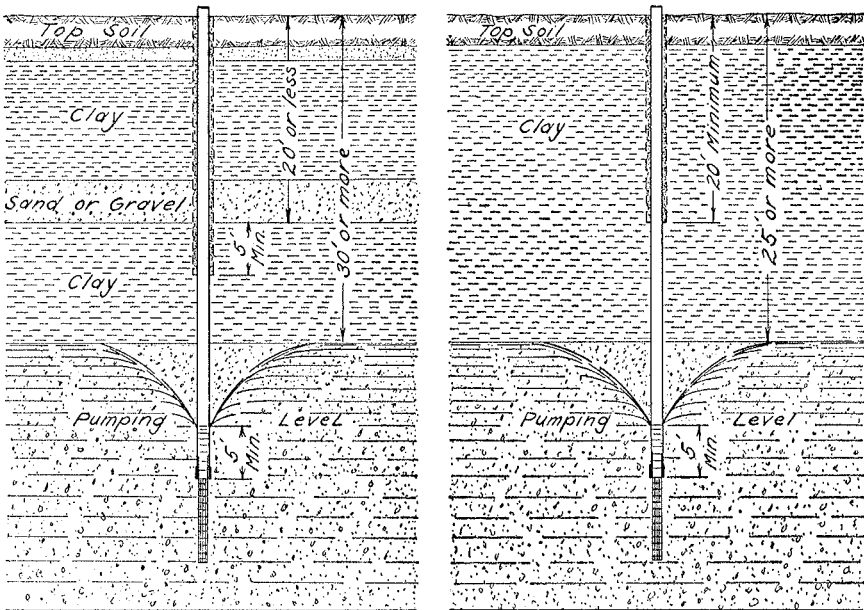 Top Soil
Clay
Sand or Gravel
Clay
20' or less
30' or more
5'
Min.
Pumping
Level
5'
Min.
Top Soil
Clay
20' Minimum
25' or more
Pumping
Level
5'
Min.